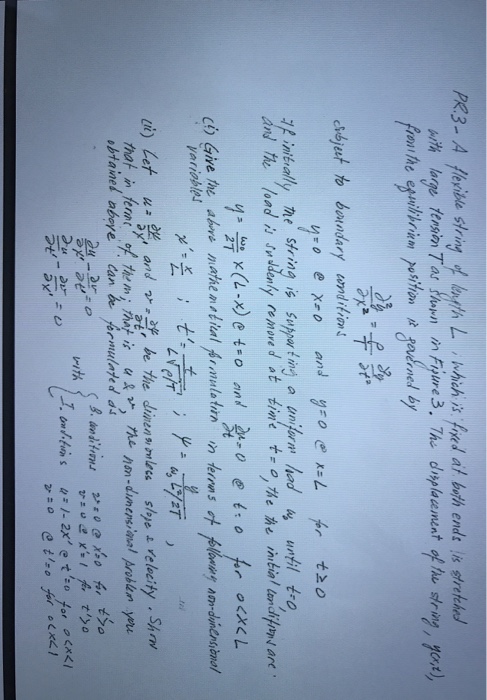 PR3- A flexible string of length L, which is fixed at both ends is stretched
with large tension T as shown in Figure 3. The displacement of the string, y(x,t),
from the equilibrium position is governed by
∂²y/∂x² = ρ/T ∂²y/∂t²
subject to boundary conditions
y=0 @ x=0 and y=0 @ x=L for t≥0
If initially, the string is supporting a uniform load ω₀ until t=0
and the load is suddenly removed at time t=0, the the initial conditions are.
y = ω₀/2T x(L-x) @ t=0 and ∂y/∂t=0 @ t=0 for 0<x<L
(i) Give the above mathematical formulation in terms of following nondimensional
variables
x' = x/L ; t' = t/L√(ρ/T) ; ψ = y/(ω₀L²/2T) ,
(ii) Let u = ∂ψ/∂x' and v = ∂ψ/∂t', be the dimensionless slope & velocity. Show
that in term of them; that is u & v, the non-dimensional problem you
obtained above can be formulated as
∂u/∂x' - ∂v/∂t' = 0
∂u/∂t' - ∂v/∂x' = 0
with { B. conditions v=0 @ x'=0 for t'>0
v=0 @ x'=1 for t'>0
I. conditions u=1-2x' @ t'=0 for 0<x<1
v=0 @ t'=0 for 0<x<1